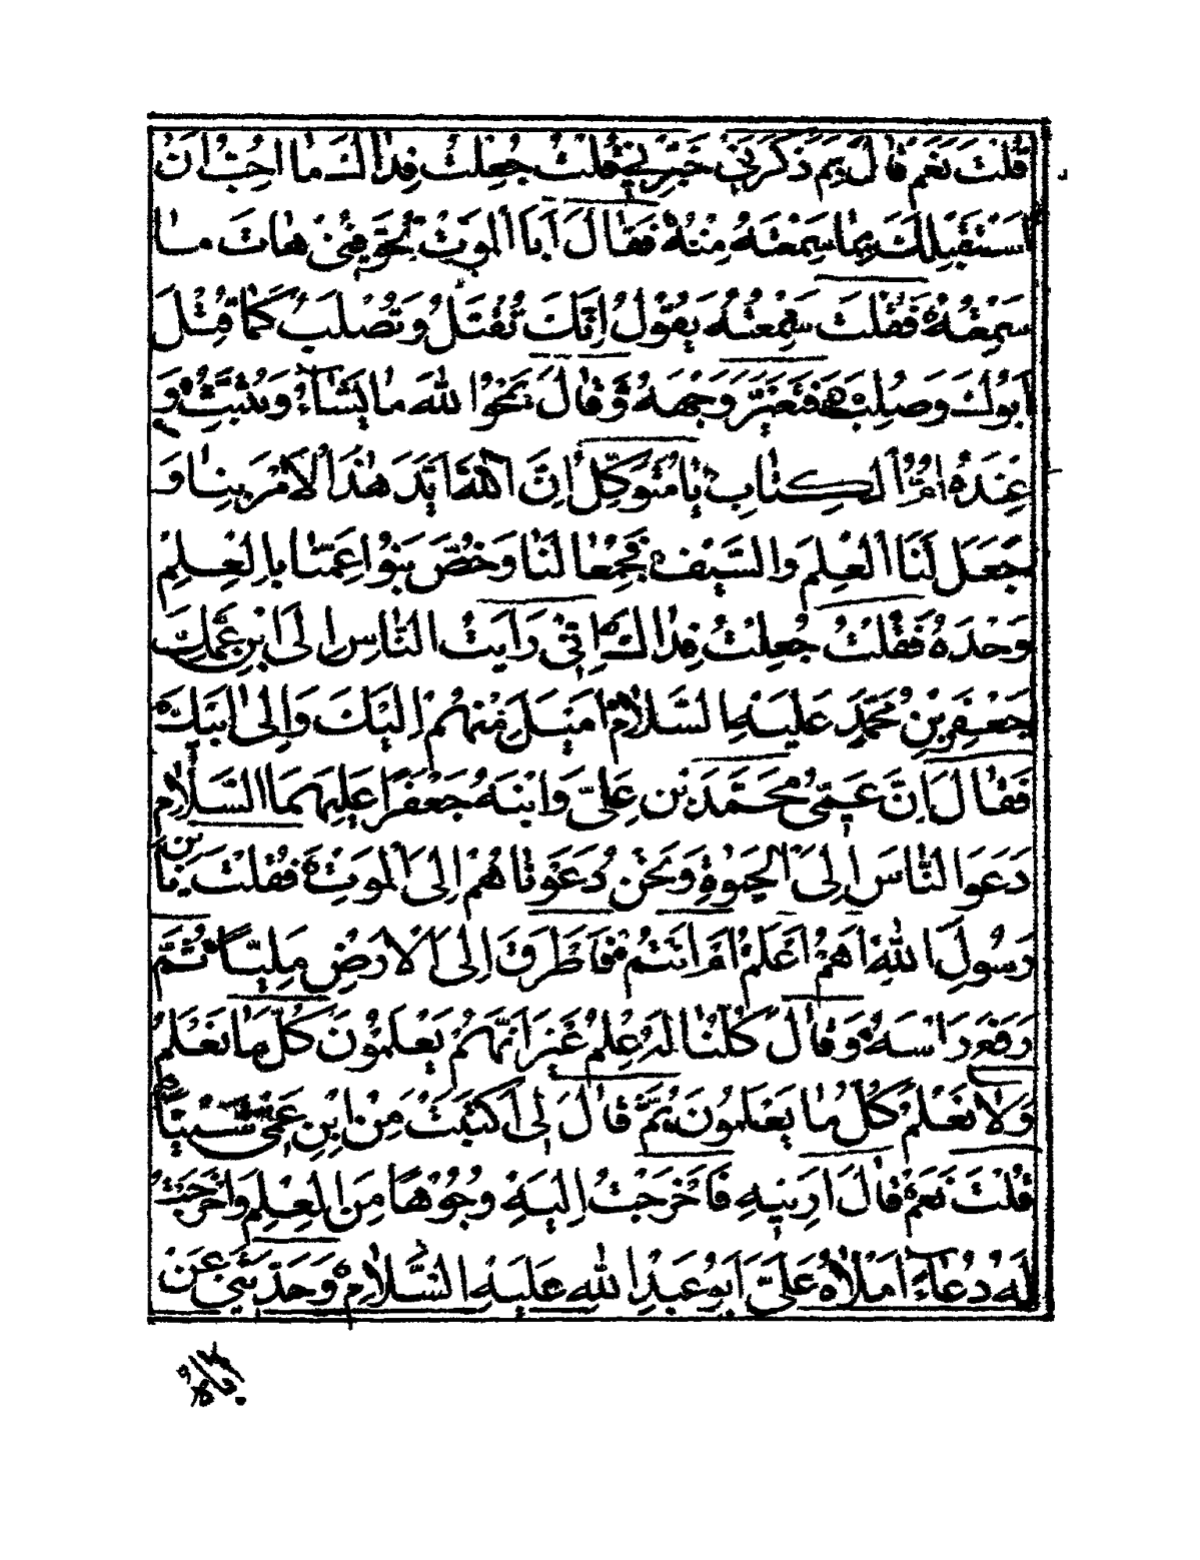 قُلْتُ نَعَمْ قَالَ بِمَ ذَكَرَنِي خَبِّرْنِي قُلْتُ جُعِلْتُ فِدَاكَ مَا أُحِبُّ أَنْ
اَسْتَقْبِلَكَ بِمَا سَمِعْتُهُ مِنْهُ فَقَالَ اَبِالْمَوْتِ تُخَوِّفُنِي هَاتَ مَا
سَمِعْتَهُ فَقُلْتُ سَمِعْتُهُ يَقُولُ اِنَّكَ تُقْتَلُ وَتُصْلَبُ كَمَا قُتِلَ
اَبُوكَ وَصُلِبَ فَتَغَيَّرَ وَجْهُهُ وَقَالَ يَمْحُوا اللهُ مَا يَشَاءُ وَيُثْبِتُ وَ
عِنْدَهُ اُمُّ الْكِتَابِ يَا مُتَوَكِّلُ اِنَّ اللهَ اَيَّدَ هٰذَا الْاَمْرَ بِنَا وَ
جَعَلَ لَنَا الْعِلْمَ وَالسَّيْفَ فَجُمِعَا لَنَا وَخُصَّ بَنُوا عَمِّنَا بِالْعِلْمِ
وَحْدَهُ فَقُلْتُ جُعِلْتُ فِدَاكَ اِنِّي رَاَيْتُ النَّاسَ اِلَى ابْنِ عَمِّكَ
جَعْفَرِ بْنِ مُحَمَّدٍ عَلَيْهِ السَّلَامُ اَمْيَلَ مِنْهُمْ اِلَيْكَ وَاِلَى اَبِيكَ
فَقَالَ اِنَّ عَمِّي مُحَمَّدَ بْنَ عَلِيٍّ وَابْنَهُ جَعْفَرًا عَلَيْهِمَا السَّلَامُ
دَعَوَا النَّاسَ اِلَى الْحَيٰوةِ وَنَحْنُ دَعَوْنَاهُمْ اِلَى الْمَوْتِ فَقُلْتُ يَا بْنَ
رَسُولِ اللهِ اَهُمْ اَعْلَمُ اَمْ اَنْتُمْ فَاَطْرَقَ اِلَى الْاَرْضِ مَلِيًّا ثُمَّ
رَفَعَ رَاْسَهُ وَقَالَ كُلُّنَا لَهُ عِلْمٌ غَيْرَ اَنَّهُمْ يَعْلَمُونَ كُلَّ مَا نَعْلَمُ
وَلَا نَعْلَمُ كُلَّ مَا يَعْلَمُونَ ثُمَّ قَالَ لِي اَكَتَبْتَ مِنِ ابْنِ عَمِّي شَيْئًا
قُلْتُ نَعَمْ قَالَ اَرِنِيهِ فَاَخْرَجْتُ اِلَيْهِ وُجُوهًا مِنَ الْعِلْمِ وَاَخْرَجْتُ
لَهُ دُعَاءً اَمْلَاهُ عَلَيَّ اَبُو عَبْدِ اللهِ عَلَيْهِ السَّلَامُ وَحَدَّثَنِي عَنْ